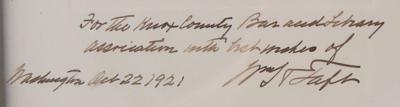 For the Knox County Bar and Library
association with best wishes of
Wm H Taft
Washington Oct 22 1921